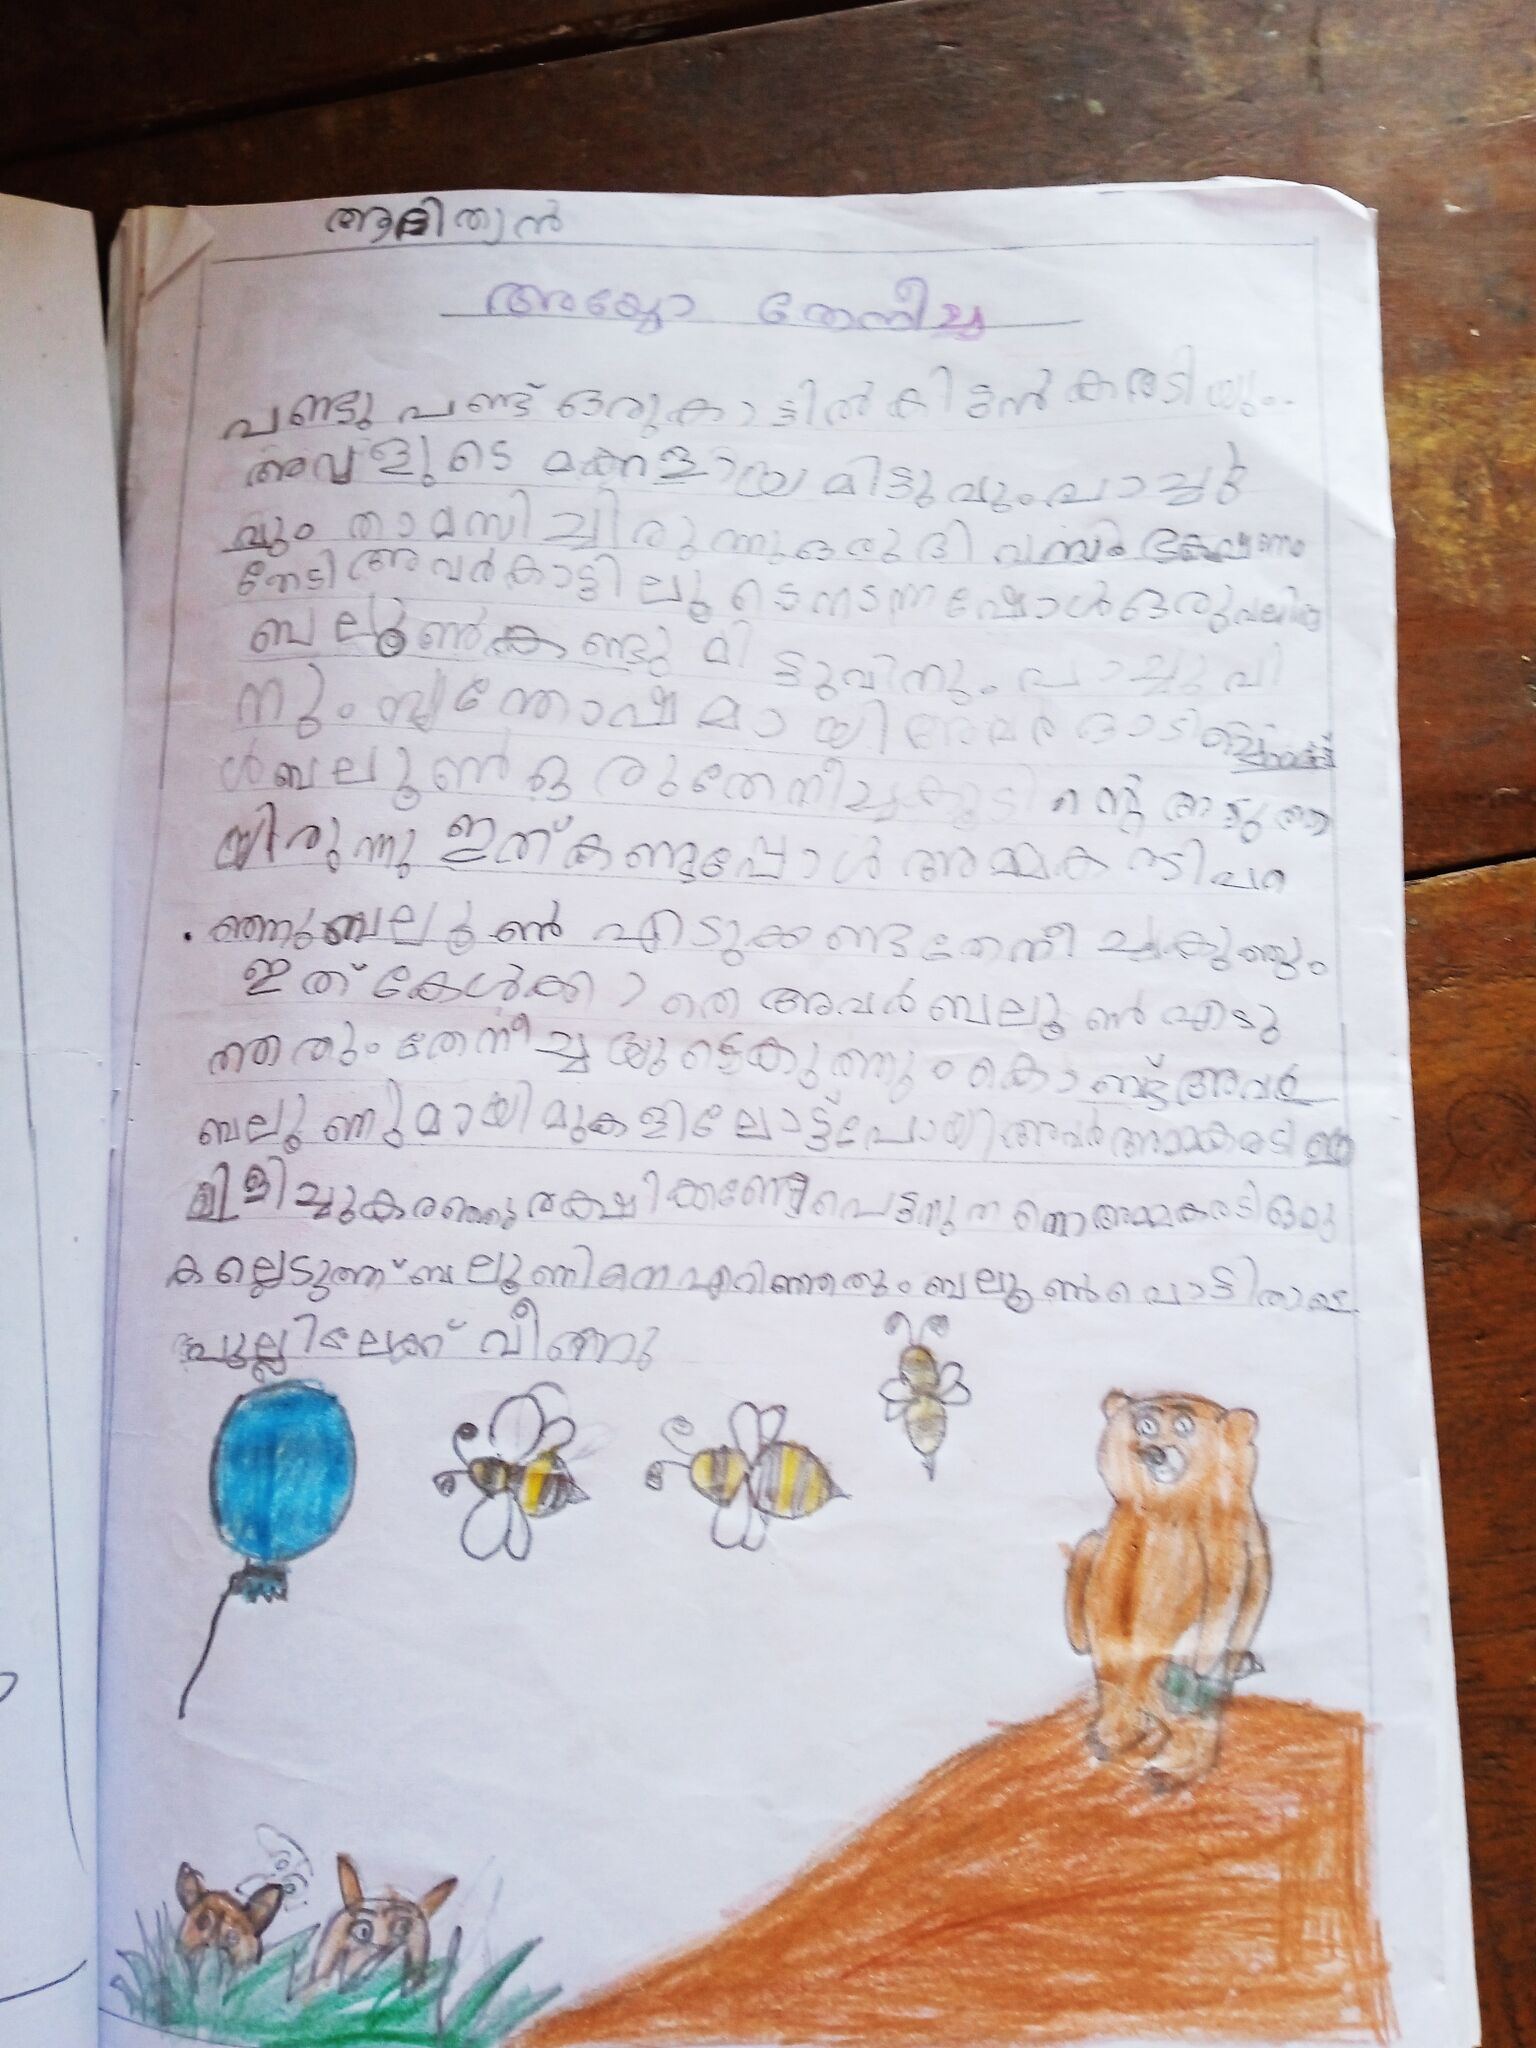 ആദിത്യൻ
അയ്യോ തേനീച്ച
പണ്ടു പണ്ട് ഒരുകാട്ടിൽ കിടൻ കരടിയും
അവളുടെ മക്കളായ മിട്ടുവും പാച്ചു
വും താമസിച്ചിരുന്നു ഒരു ദിവസം ഭക്ഷണം
തേടി അവർ കാട്ടിലൂടെ നടന്നപ്പോൾ ഒരു വലിയ
ബലൂൺ കണ്ടു മിട്ടുവിനും പാച്ചുവി
നും സന്തോഷമായി അവർ ഓടി
ബലൂൺ ഒരു തേനീച്ചകൂടിന്റെ അടുത്താ
യിരുന്നു ഇത് കണ്ടപ്പോൾ അമ്മകരടി പറ
ഞ്ഞു ബലൂൺ എടുക്കണ്ട തേനീച്ചകുത്തും
ഇത് കേൾക്കാതെ അവർ ബലൂൺ എടു
ത്തതും തേനീച്ചയുടെകുത്തും കൊണ്ട് അവർ
ബലൂണുമായി മുകളിലോട്ട് പോയി അവർ അമ്മകരടി
വിളിച്ചുകരഞ്ഞു രക്ഷിക്കണേ പെട്ടന്നു തന്നെ അമ്മകരടി ഒരു
കല്ലെടുത്ത് ബലൂണിനെ എറിഞ്ഞതും ബലൂൺ പൊട്ടി താഴെ
പുല്ലിലേക്ക് വീണു